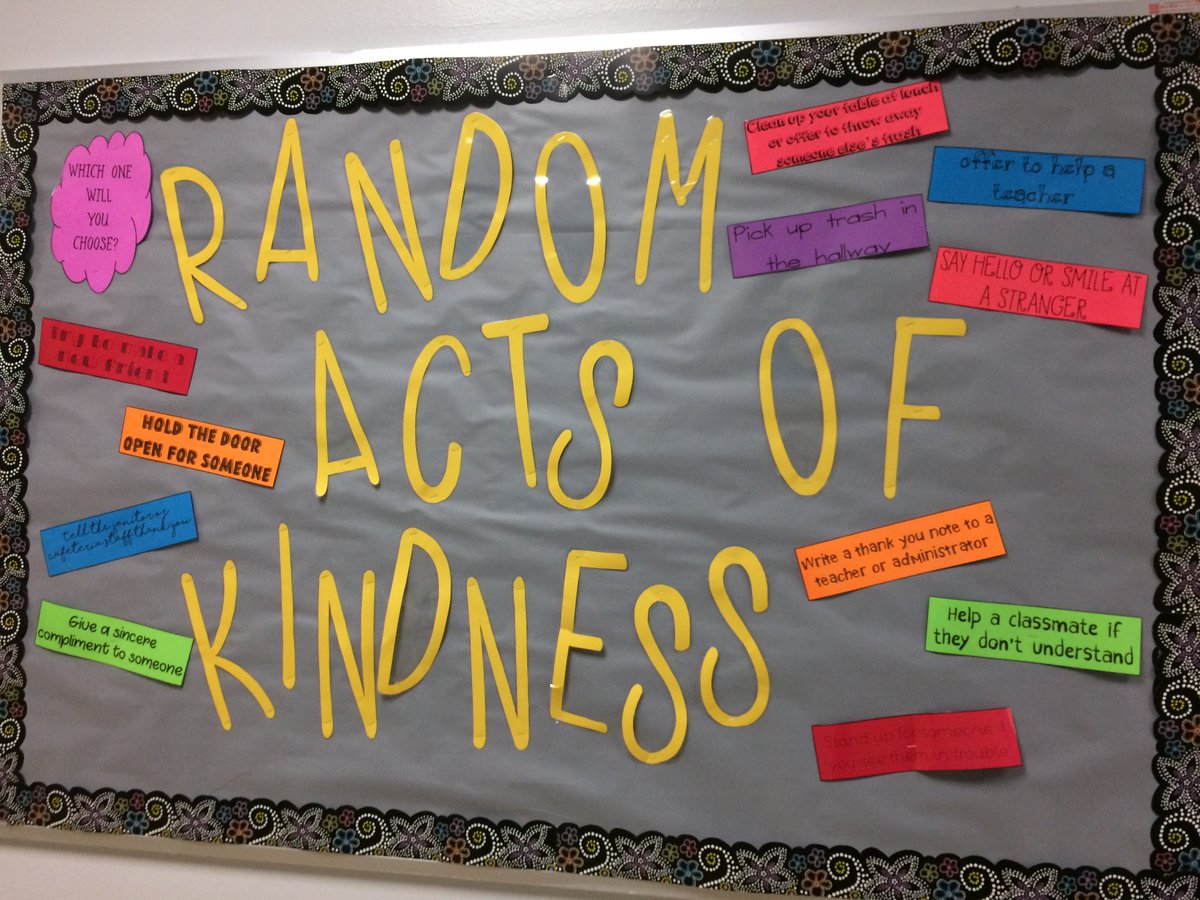 WHICH ONE
WILL
YOU
CHOOSE?
RANDOM
ACTS OF
KINDNESS
Clean up your table at lunch
or offer to throw away
someone else's trash
offer to help a
teacher
Pick up trash in
the hallway
SAY HELLO OR SMILE AT
A STRANGER
Try to make a
new friend
HOLD THE DOOR
OPEN FOR SOMEONE
tell the janitor or
cafeteria staff thank you
Give a sincere
compliment to someone
Write a thank you note to a
teacher or administrator
Help a classmate if
they don't understand
Stand up for someone if
you see them in trouble